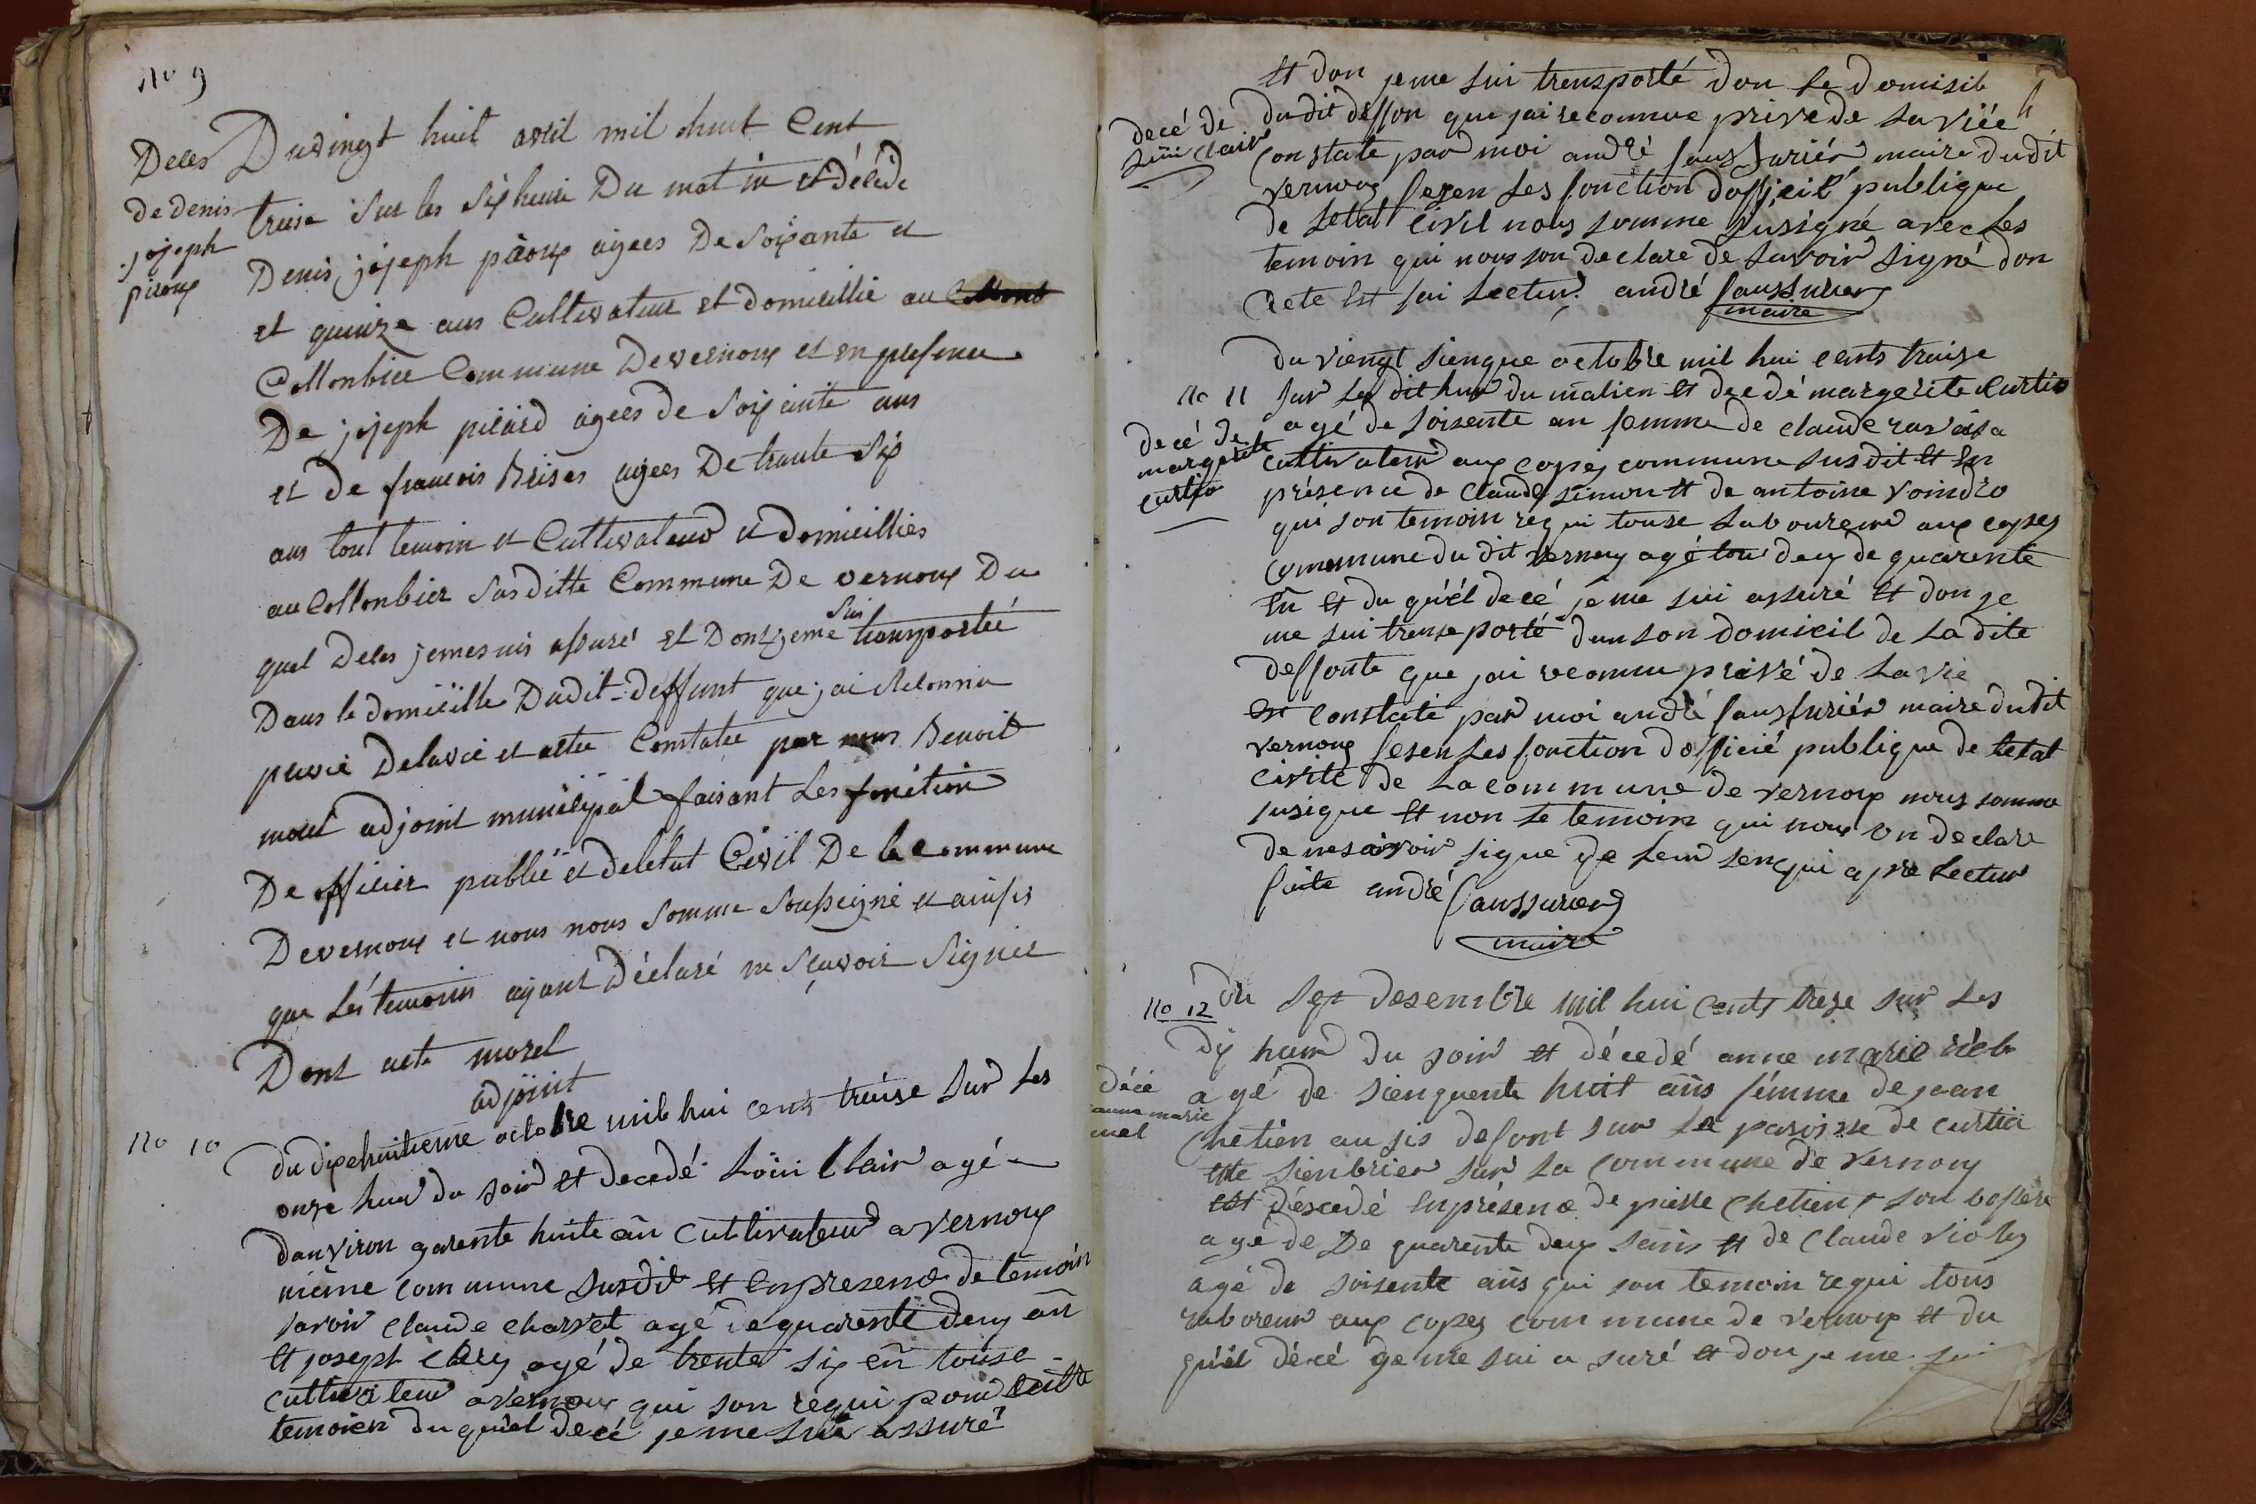 No 9
Deces
de denis
jojeph
piroux
Du vingt huit avril mil huit Cent
treise Sur les six heure Du matin et décéde
Denis jojeph piroux agees De Soixante et
et quinze ans Cultivateur et domicillié au
Collonbier Commune De vernoux et en presence
De jojeph picard agees de Soixante ans
et De francois agees De trante Six
ans tout temoin et Cultivateur et Domicilliés
au Collonbier Sus Ditte Commune De vernoux Du
quel Deces je me suis assuré et Dont je me suis transporteé
Dans le domicille Dudit Deffunt que j'ai Reconnu
privé Delavie et acte Constatée par nous Benoit
morel adjoint municipal faisant Les fonction
De officier publie et de letat Civil De la Commune
De vernoux et nous nous Somme Soussigné et
que Les temoins ayant Déclaré ne Scavoir Signer
Dont acte morel
adjoint
No 10
du dixhuitieme octobre mil hui cents treise sur les
onze heur du soir et decedé Loüi Clair agé
danviron garente huite an cultivateur a vernoux
même commune susdit et en presence de temoin
savoir claude charvet agé de quarente deux an
et joseph agé de trente six en touse
cultivateur a vernoux qui son requi pour
temoien du quel decé je me sui assuré
et don je me sui trensporté don le domisil
decé de
Loüi Clair
du dit deffon que jai reconnue privé de la viée
Constate par moi andré faussurier maire du dit
vernoux fesen les fonction doffjeil publique
de letat Civil nous somme susigné avec les
temoin qui nous son declaré de savoir signé don
acte est fai Lectur andré faussurier
maire
du viengt sienque octobre mil hui cents traise
No 11
sur les dit hur du matien et decedé margerite Curtio
decé de
margerite
curtio
agé de soisente an femme de claude
cultivateur aux copes commune susdit et en
présence de claude simon et de antoine voindro
qui son temoin requi touse laboureur aux copes
commune du dit vernoux agé tou deux de quarente
en et du quél decé je me sui assuré et don je
me sui trense porté dun son domicil de la dite
deffonte que jai reconnu privé de la vie
constaté par moi andré faussuriér maire du dit
vernoux fesen les fonction dofficié publique de letat
civile de la commune de vernoux nous somme
susigne et non le temoin qui nous on declare
de ne savoir signe de leur senqui apre lectur
faite andré faussurier
maire
No 12
du sept desembre mil hui cents treze sur les
dix heur du soir et décedé anne marie
décé
anne marie
agé de sienquente huit ans fémme de jean
Chetien au sis defont sur la paroisse de curtia
sur la commune de vernoux
est déscedé en présence de pierre chetien son bofrere
agé de De quarente deux sans et de Claude violy
agé de soisente ans qui son temoin requi tous
raboreur aux copes commune de vernoux et du
quél décé ge me sui a suré et don je me sui